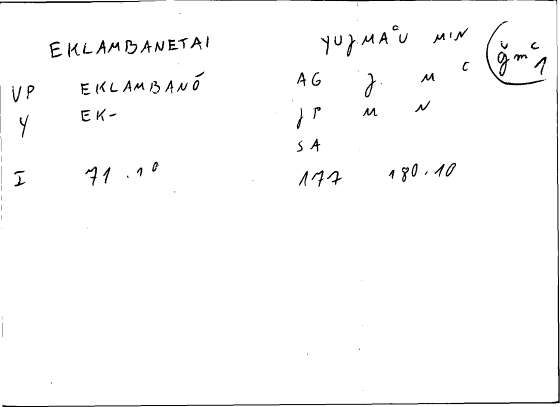 EKLAMBANETAI YUJMAʿU MIN ǧmʿ 1
VP EKLAMBANŌ AG J. M ʿ
Y EK- JP M N
SA
I 71.10 177 180.10